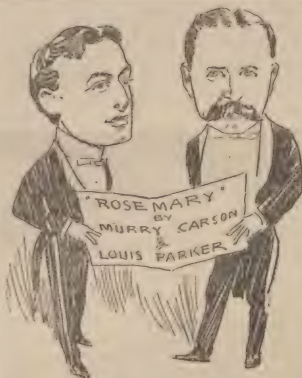 "ROSEMARY"
BY
MURRY CARSON
&
LOUIS PARKER